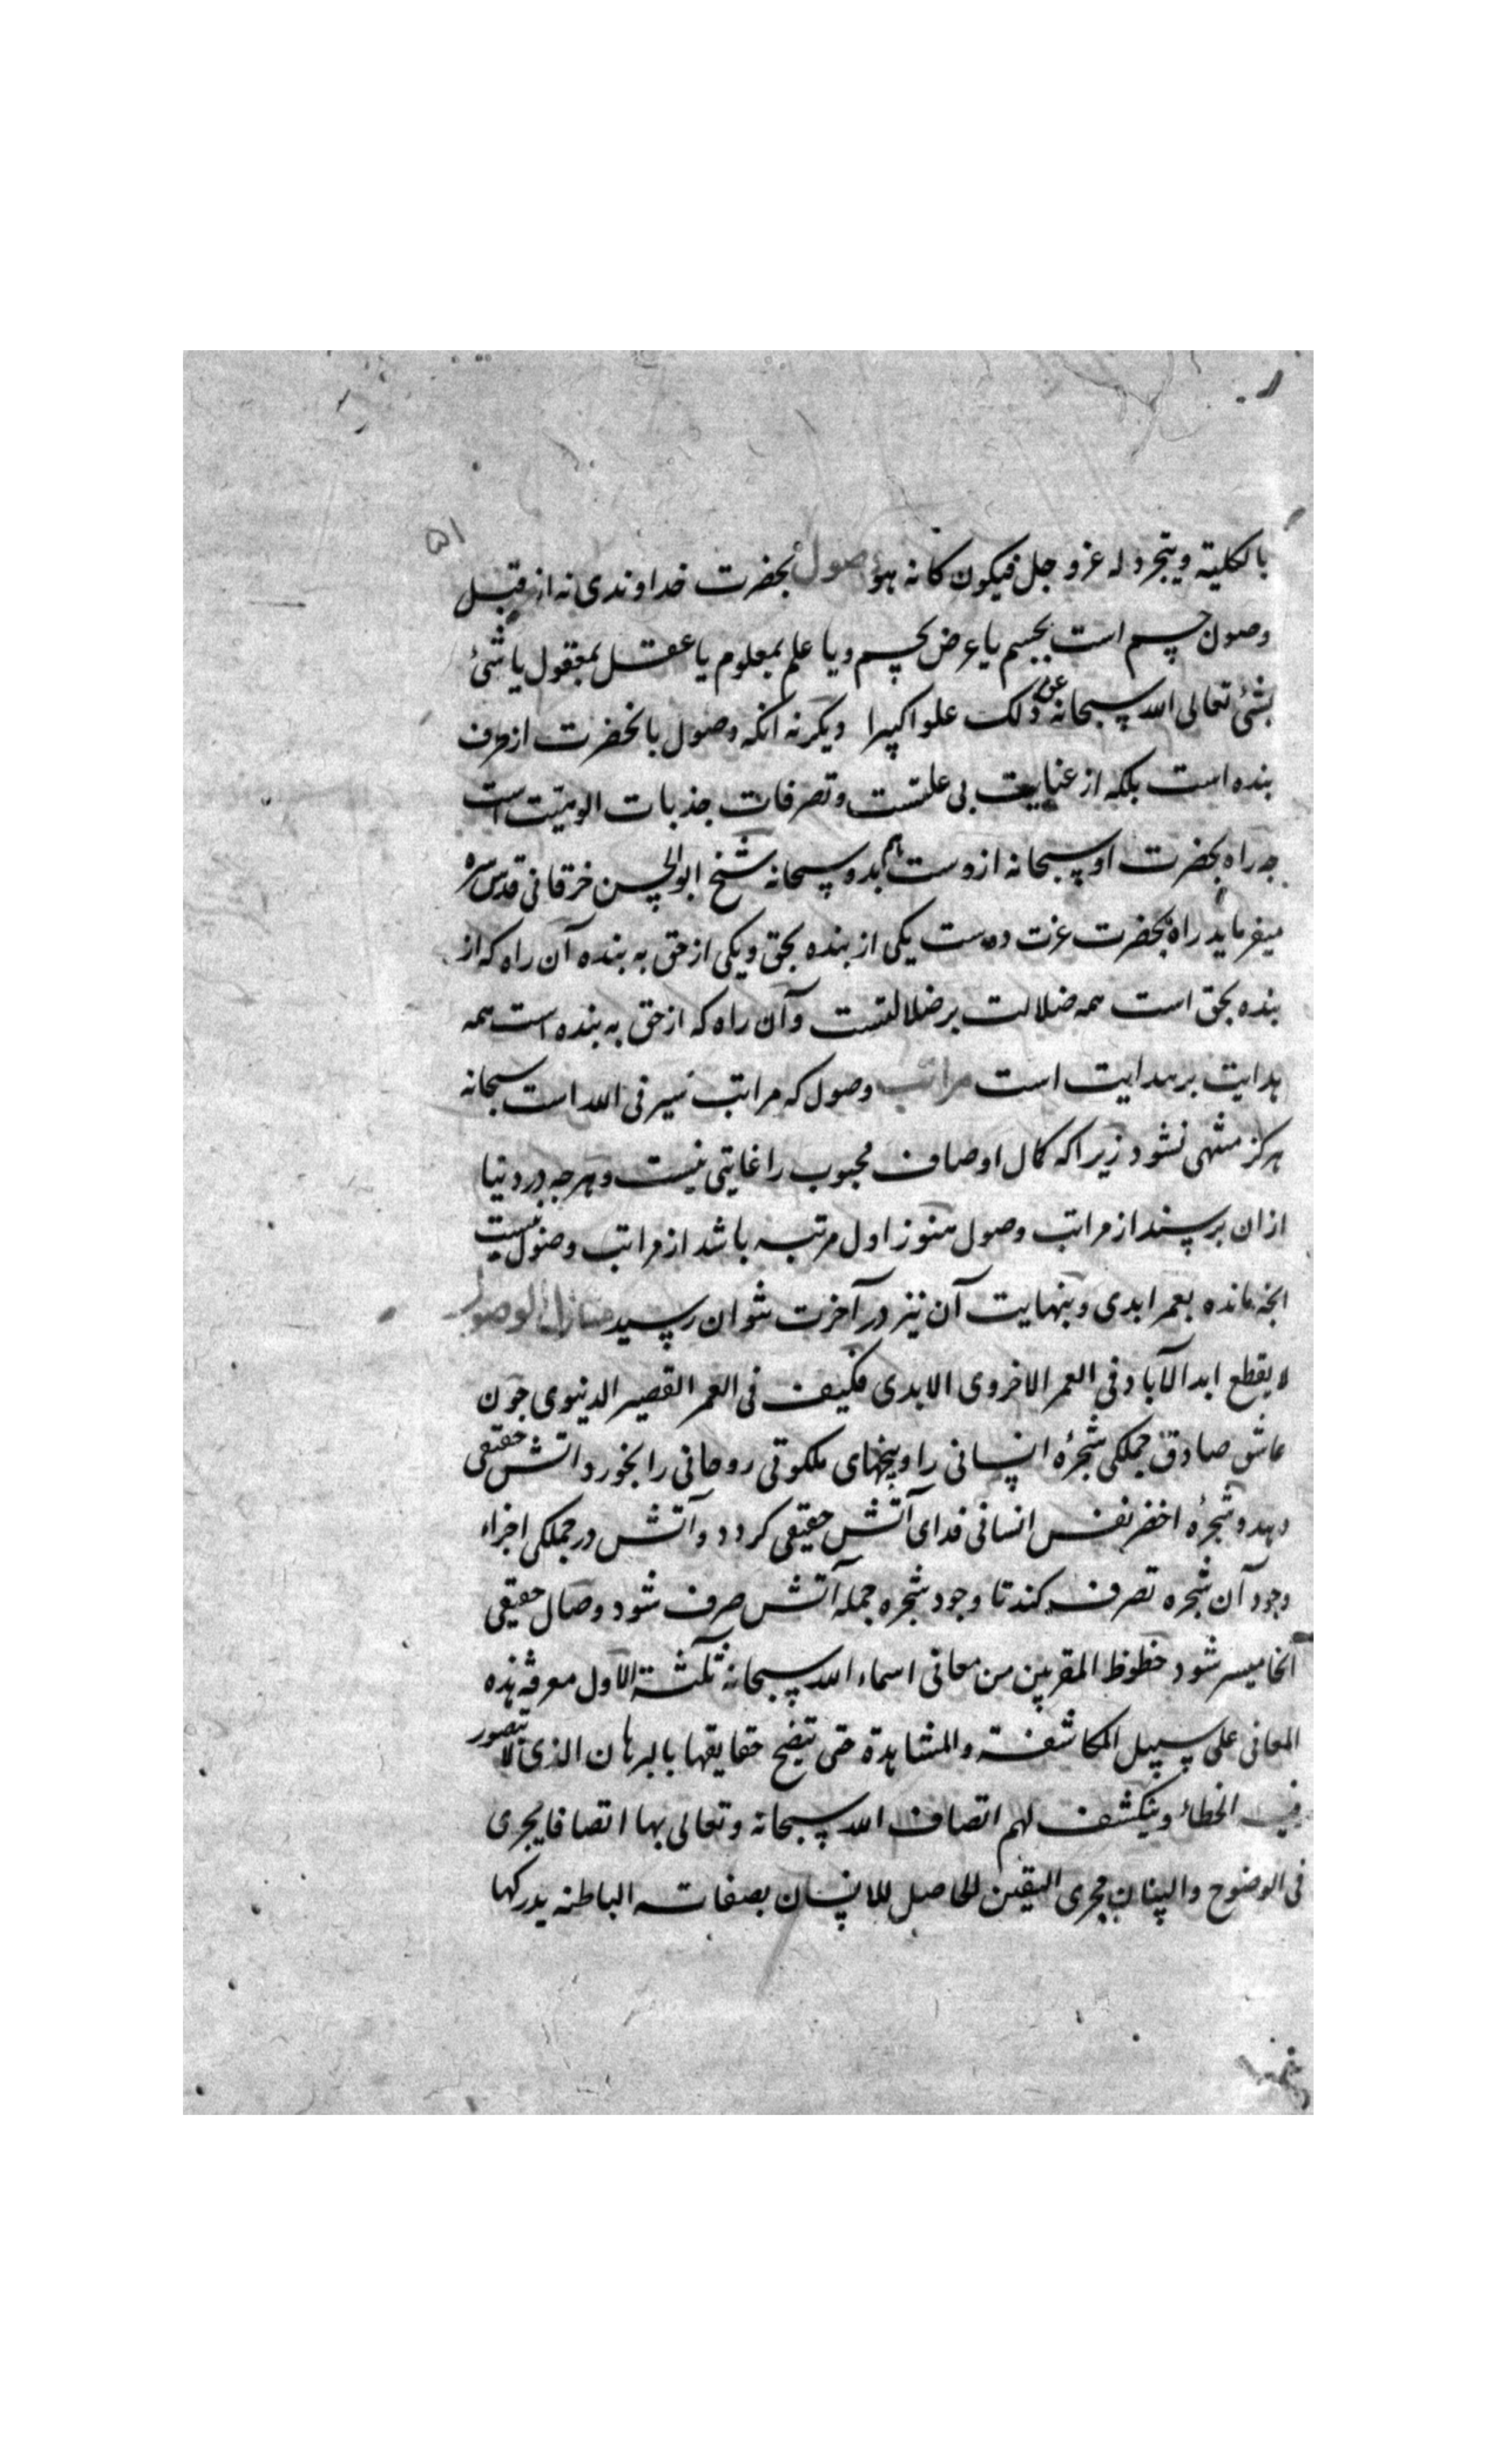 ۵۱
بالکلیة ویتجرد له عز و جل فیکون کانه هو وصول بحضرت خداوندی نه از قبیل
وصول جسم است بجسم یا عرض بجسم ویا علم بمعلوم یا عقل بمعقول یا شئ
بشئ تعالی الله سبحانه عن ذلک علوا کبیرا ودیکر نه انکه وصول بانحضرت از طرف
بنده است بلکه از عنایت بی علتست وتصرفات جذبات الوهیت است
چه راه بحضرت او سبحانه ازوست هم بدو سبحانه شیخ ابوالحسن خرقانی قدس سره
میفرماید راه بحضرت عزت دوست یکی از بنده بحق ویکی از حق به بنده آن راه که از
بنده بحق است همه ضلالت بر ضلالتست وآن راه که از حق به بنده است همه
هدایت بر هدایت است مراتب وصول که مراتب سیر فی الله است سبحانه
هرکز منتهی نشود زیرا که کمال اوصاف محبوب را غایتی نیست وهرچه در دنیا
ازان برسند از مراتب وصول هنوز اول مرتبه باشد از مراتب وصول نسبت
انچه مانده بعمر ابدی وبنهایت آن نیز در آخرت نتوان رسید منازل الوصول
لا یقطع ابد الآباد فی العمر الاخروی الابدی فکیف فی العمر القصیر الدنیوی چون
عاشق صادق جملکی شجرهٔ انسانی را وبیخهای ملکوتی روحانی را بخورد اتش حقیقی
دهد وشجرهٔ اخضر نفس انسانی فدای آتش حقیقی کردد وآتش در جملکی اجزاء
وجود آن شجره تصرف کند تا وجود شجره جمله آتش صرف شود وصال حقیقی
انجا میسر شود حظوظ المقربین من معانی اسماء الله سبحانه ثلثة الاول معرفة هذه
المعانی علی سبیل المکاشفة والمشاهدة حتی یتضح حقایقها بالبرهان الذی لا یتصور
فیه الخطاء وینکشف لهم اتصاف الله سبحانه وتعالی بها اتصافا یجری
فی الوضوح والبیان مجری الیقین الحاصل للانسان بصفاته الباطنه یدرکها